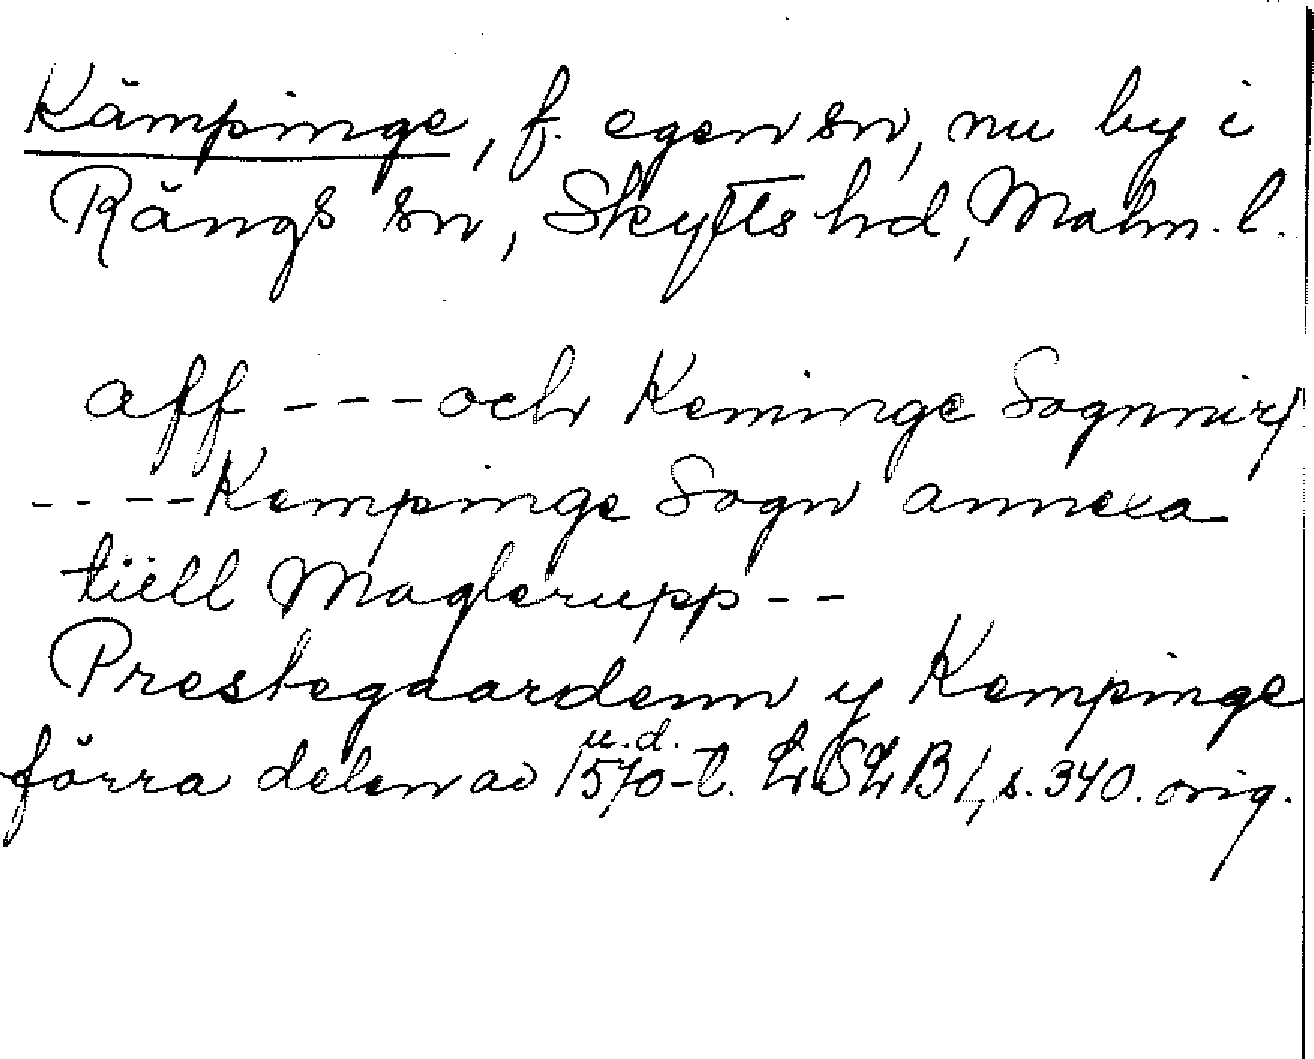 Kämpinge, f. egen sn, nu by i
Rängs sn, Skytts hd, Malm. l.
aff --- och Keminge Sognnir/
---- Kempinge Sogn annexa
tiell Maglerupp --
Prestegaardenn y Kempinge
u.d.
förra delen av 1570-t. LSLB 1, s. 340. orig.